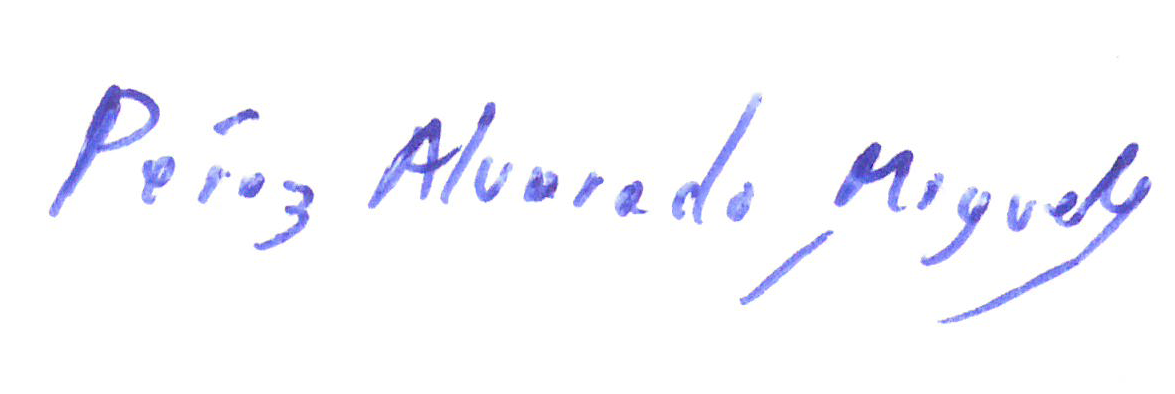 Pérez Alvarado, Miguely